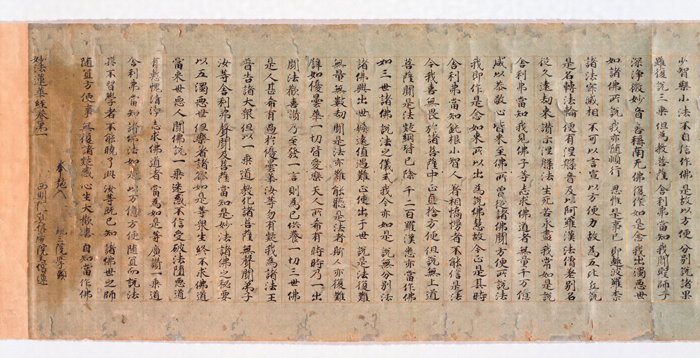 小智樂小法 不自信作佛 是故以方便 分別說諸果
雖復說三乘 但為教菩薩 舍利弗當知 我聞聖師子
深淨微妙音 喜稱南无佛 復作如是念 我出濁惡世
如諸佛所說 我亦隨順行 思惟是事已 即趣波羅柰
諸法寂滅相 不可以言宣 以方便力故 為五比丘說
是名轉法輪 便有涅槃音 及以阿羅漢 法僧差別名
從久遠劫來 讚示涅槃法 生死苦永盡 我常如是說
舍利弗當知 我見佛子等 志求佛道者 無量千万億
咸以恭敬心 皆來至佛所 曾從諸佛聞 方便所說法
我即作是念 如來所以出 為說佛慧故 今正是其時
舍利弗當知 鈍根小智人 著相憍慢者 不能信是法
今我喜無畏 於諸菩薩中 正直捨方便 但說無上道
菩薩聞是法 疑網皆已除 千二百羅漢 悉亦當作佛
如三世諸佛 說法之儀式 我今亦如是 說無分別法
諸佛興出世 懸遠值遇難 正使出于世 說是法復難
無量無數劫 聞是法亦難 能聽是法者 斯人亦復難
譬如優曇華 一切皆愛樂 天人所希有 時時乃一出
聞法歡喜讚 乃至發一言 則為已供養 一切三世佛
是人甚希有 過於優曇華 汝等勿有疑 我為諸法王
普告諸大眾 但以一乘道 教化諸菩薩 無聲聞弟子
汝等舍利弗 聲聞及菩薩 當知是妙法 諸佛之秘要
以五濁惡世 但樂著諸欲 如是等眾生 終不求佛道
當來世惡人 聞佛說一乘 迷惑不信受 破法墮惡道
有慚愧清淨 志求佛道者 當為如是等 廣讚一乘道
舍利弗當知 諸佛法如是 以万億方便 隨宜而說法
其不習學者 不能曉了此 汝等既已知 諸佛世之師
隨宜方便事 無復諸疑惑 心生大歡喜 自知當作佛
妙法蓮華經卷第一